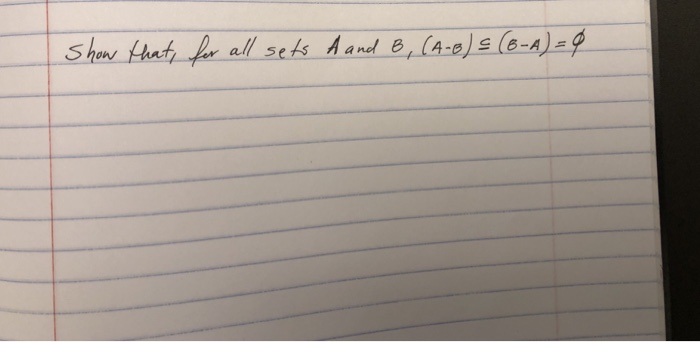 Show that, for all sets A and B, (A-B) ⊆ (B-A) = ϕ